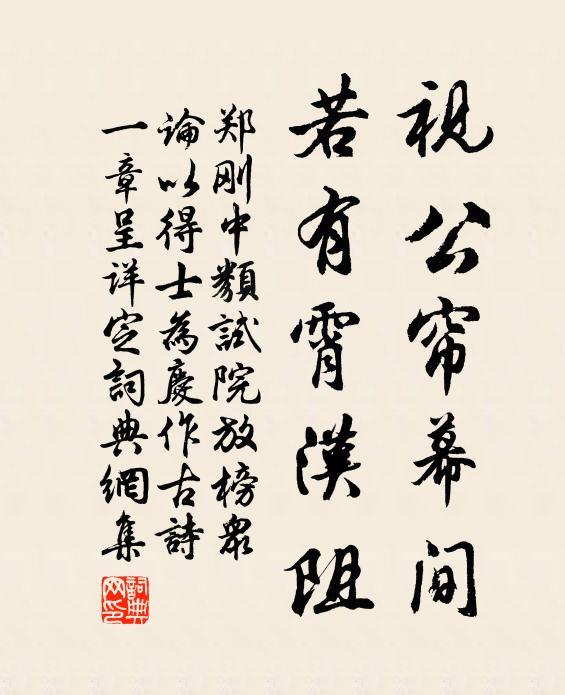 视公帘幕间
若有霄漠阻
郑刚中類試院放榜衆
論以得士為慶作古詩
一章呈详定詞典網集
詞典網印